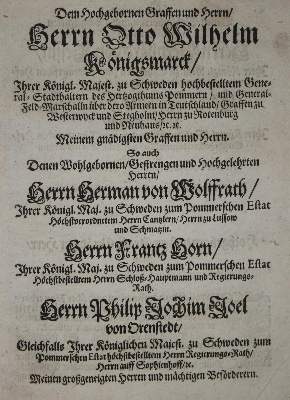 Dem Hochgebornen Graffen und Herrn/
Herrn Otto Wilhelm
Königsmarck/
Ihrer Königl. Majest. zu Schweden hochbestelltem Gene-
ral-Stadthaltern des Hertzogthums Pommern/ und General-
Feld-Marschalln über dero Armeen in Teutschland/ Graffen zu
Westerwyck und Stegholm/ Herrn zu Rotenburg
und Neuhaus/ꝛc.ꝛc.
Meinem gnädigsten Graffen und Herrn.
So auch
Denen Wohlgebornen/ Gestrengen und Hochgelehrten
Herren/
Herrn Herman von Wolffrath/
Ihrer Königl. Maj. zu Schweden zum Pommerschen Estat
Höchstverordnetem Herrn Cantzlern/ Herrn zu Lüssow
und Schmatzin.
Herrn Frantz Horn/
Ihrer Königl. Maj. zu Schweden zum Pommerschen Estat
Höchstbestelltem Herrn Schloß-Hauptmann und Regierungs-
Rath.
Herrn Philip Jochim Joel
von Orenstedt/
Gleichfalls Ihrer Königlichen Majest. zu Schweden zum
Pommerschen Estat höchstbestelltem Herrn Regierungs-Rath/
Herrn auff Sophienhoff/ꝛc.
Meinen großgeneigten Herren und mächtigen Beförderern.